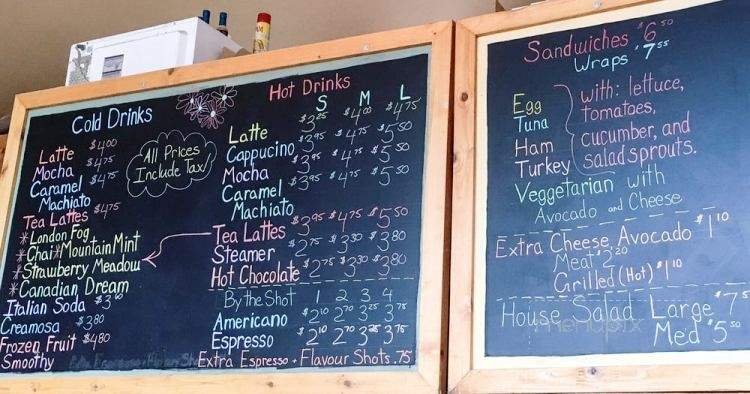 Cold Drinks
Latte $4.00
Mocha $4.75
Caramel $4.75
Machiato
Tea Lattes $4.75
*London Fog
*Chai *Mountain Mint
*Strawberry Meadow
*Canadian Dream
Italian Soda
Creamosa $3.80
Frozen Fruit $4.80
Smoothy
All Prices
Include Tax!
Hot Drinks
S M L
Latte $3.25 $4.00 $4.75
Cappucino $3.95 4.75 $5.50
Mocha $3.95 $4.75 $5.50
Caramel $3.95 $4.75 $5.50
Machiato
Tea Lattes $3.95 $4.75 $5.50
Steamer $2.75 $3.30 $3.80
Hot Chocolate $2.75 $3.30 $3.80
By the Shot 1 2 3 4
Americano $2.10 2.70 3.25 3.75
Espresso $2.10 2.70 3.25 3.75
Extra Espresso + Flavour Shots .75
Sandwiches $6.50
Wraps $7.55
Egg
Tuna
Ham
Turkey
with: lettuce,
tomatoes,
cucumber, and
salad sprouts.
Veggetarian with
Avocado and Cheese
Extra Cheese, Avocado $1.10
Meat $2.20
Grilled (Hot) $1.10
House Salad Large
Med $5.50
menupix